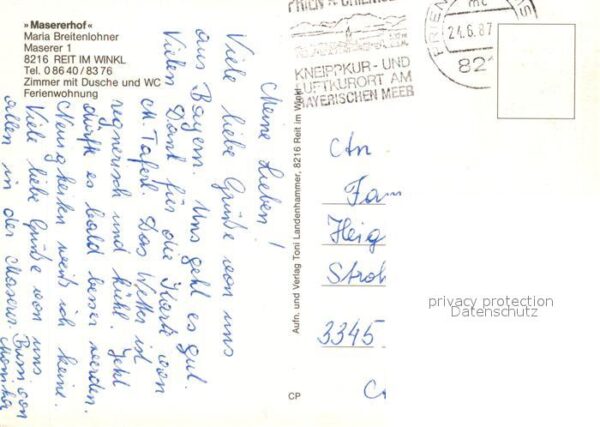 »Masererhof«
Maria Breitenlohner
Maserer 1
8216 REIT IM WINKL
Tel. 0 86 40 / 83 76
Zimmer mit Dusche und WC
Ferienwohnung
Meine Lieben!
Viele liebe Grüße von uns
aus Bayern. Uns geht es gut.
Vielen Dank für die Karte von
M Taferl. Das Wetter ist
regnerisch und kühl. Jetzt
dürft es bald besser werden.
Neuigkeiten weiß ich keine.
Viele liebe Grüße von uns
allen in der Maserer
Bussi von
Monika
Aufn. und Verlag Toni Landenhammer, 8216 Reit im Winkl
CP
PRIEN A. CHIEMSEE
KNEIPPKUR- UND
LUFTKURORT AM
BAYERISCHEN MEER
PRIEN
mc
21.6.87
821
An
Fam
Heig
Stroh
3345
privacy protection
Datenschutz